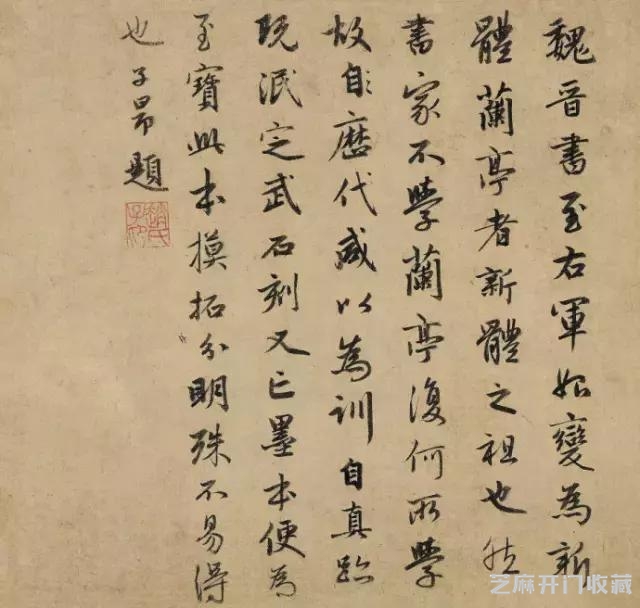 魏晉書至右軍始變為新
體蘭亭者新體之祖也然
書家不學蘭亭復何所學
故自歷代咸以為訓自真跡
既泯定武石刻又亡墨本便為
至寶此本摸拓分明殊不易得
也子昂題
趙氏子昂
芝麻开门收藏